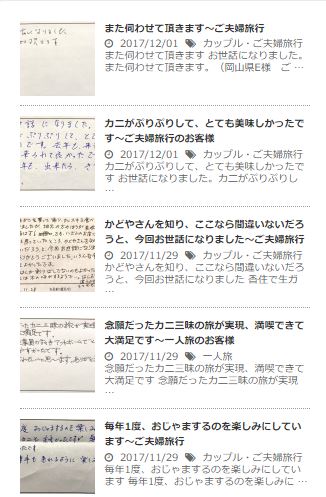 また伺わせて頂きます～ご夫婦旅行
2017/12/01 カップル・ご夫婦旅行
また伺わせて頂きます お世話になりました。
また伺わせて頂きます。（岡山県E様 ご …
カニがぷりぷりして、とても美味しかったで
す～ご夫婦旅行のお客様
2017/12/01 カップル・ご夫婦旅行
カニがぷりぷりして、とても美味しかったで
す お世話になりました。カニがぷりぷりし
…
かどやさんを知り、ここなら間違いないだろ
うと、今回お世話になりました～ご夫婦旅行
2017/11/29 カップル・ご夫婦旅行
かどやさんを知り、ここなら間違いないだろ
うと、今回お世話になりました 香住で生ガ
…
念願だったカニ三昧の旅が実現、満喫できて
大満足です～一人旅のお客様
2017/11/29 一人旅
念願だったカニ三昧の旅が実現、満喫できて
大満足です 念願だったカニ三昧の旅が実現
…
毎年1度、おじゃまするのを楽しみにしてい
ます～ご夫婦旅行
2017/11/29 カップル・ご夫婦旅行
毎年1度、おじゃまするのを楽しみにしてい
ます 毎年1度、おじゃまするのを楽しみに …